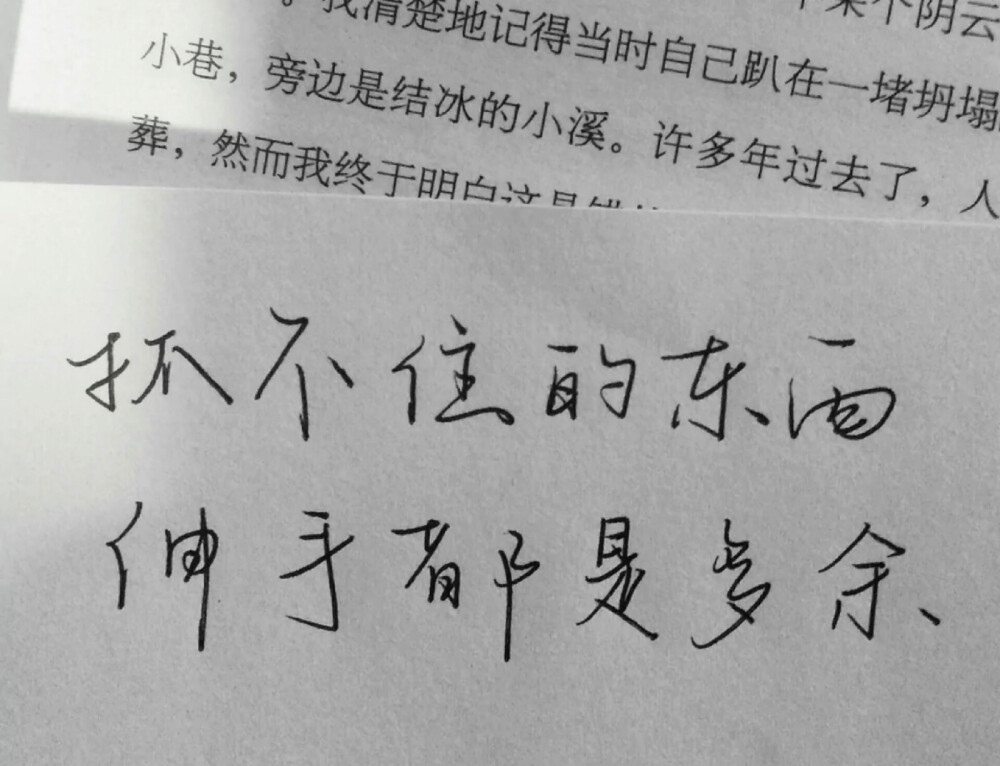 某个阴云
。我清楚地记得当时自己趴在一堵坍塌
小巷，旁边是结冰的小溪。许多年过去了，人
葬，然而我终于明白这是
抓不住的东西
伸手都是多余、